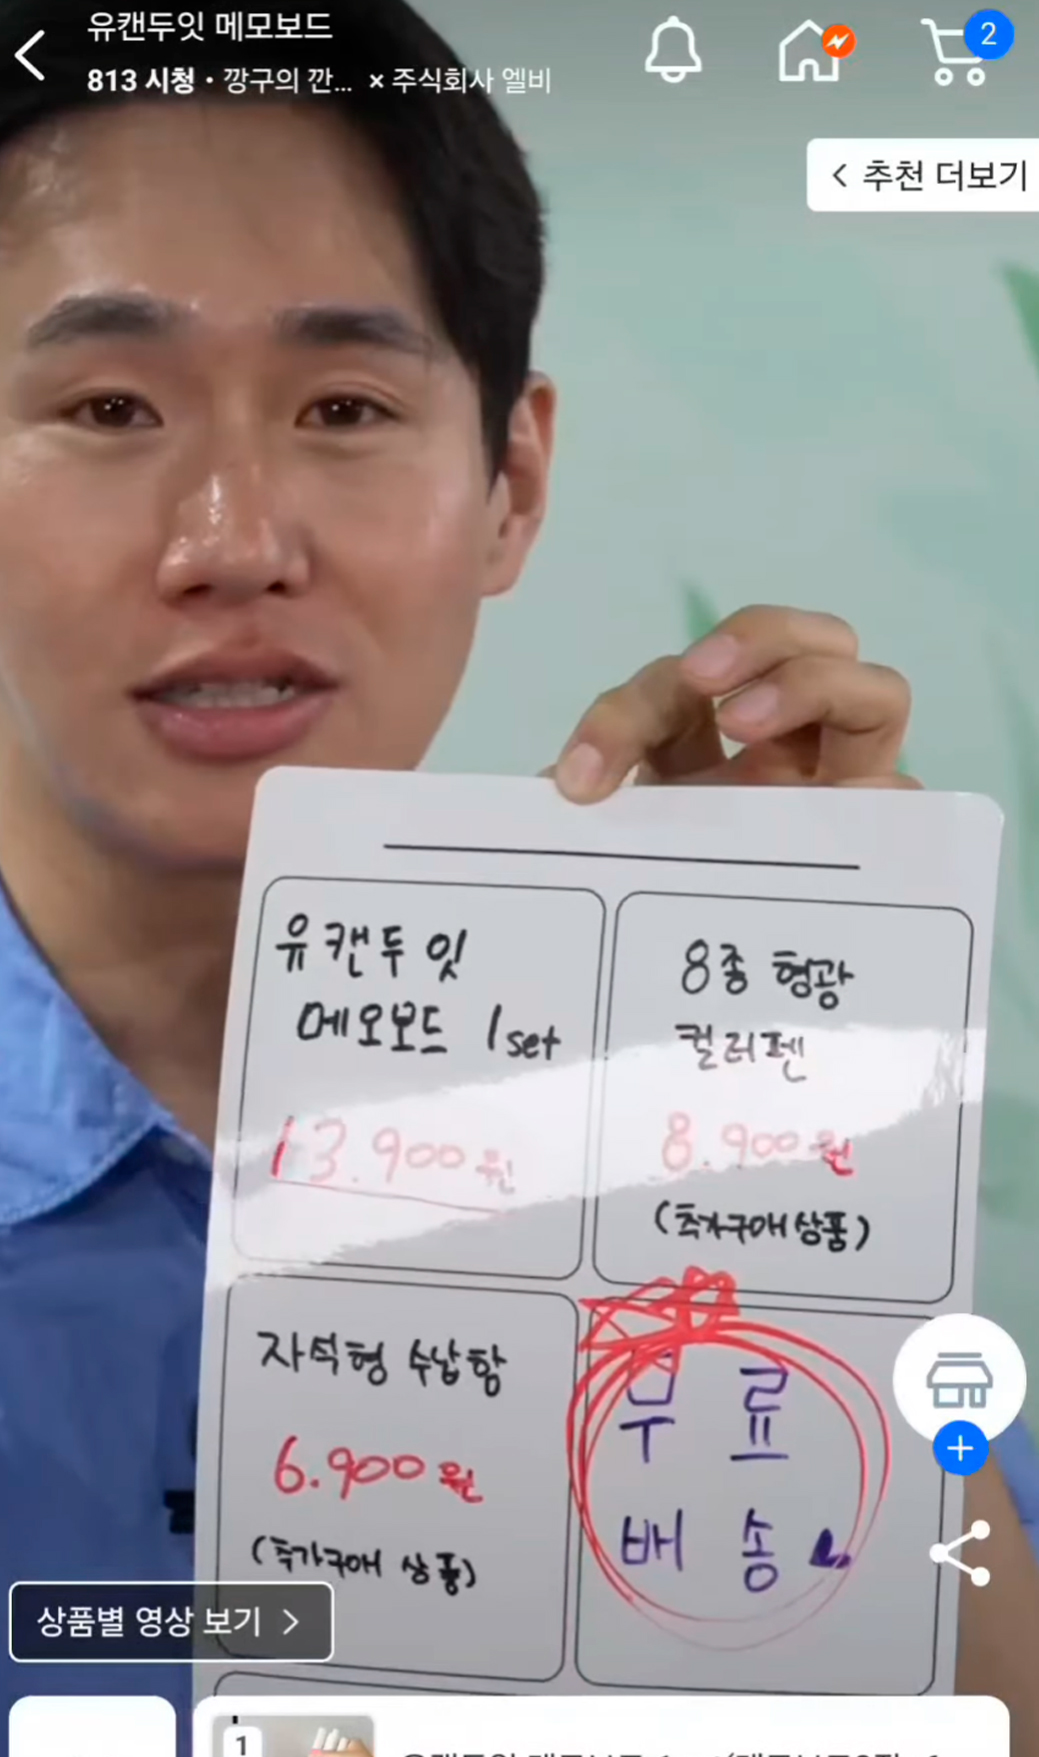 유캔두잇 메모보드
813 시청 · 깡구의 깐... × 주식회사 엘비
2
추천 더보기
유캔두잇
메모보드 1set
13.900원
8종 형광
컬러펜
8.900원
(추가구매 상품)
자석형 수납함
6.900원
(추가구매 상품)
무료
배송
상품별 영상 보기
1